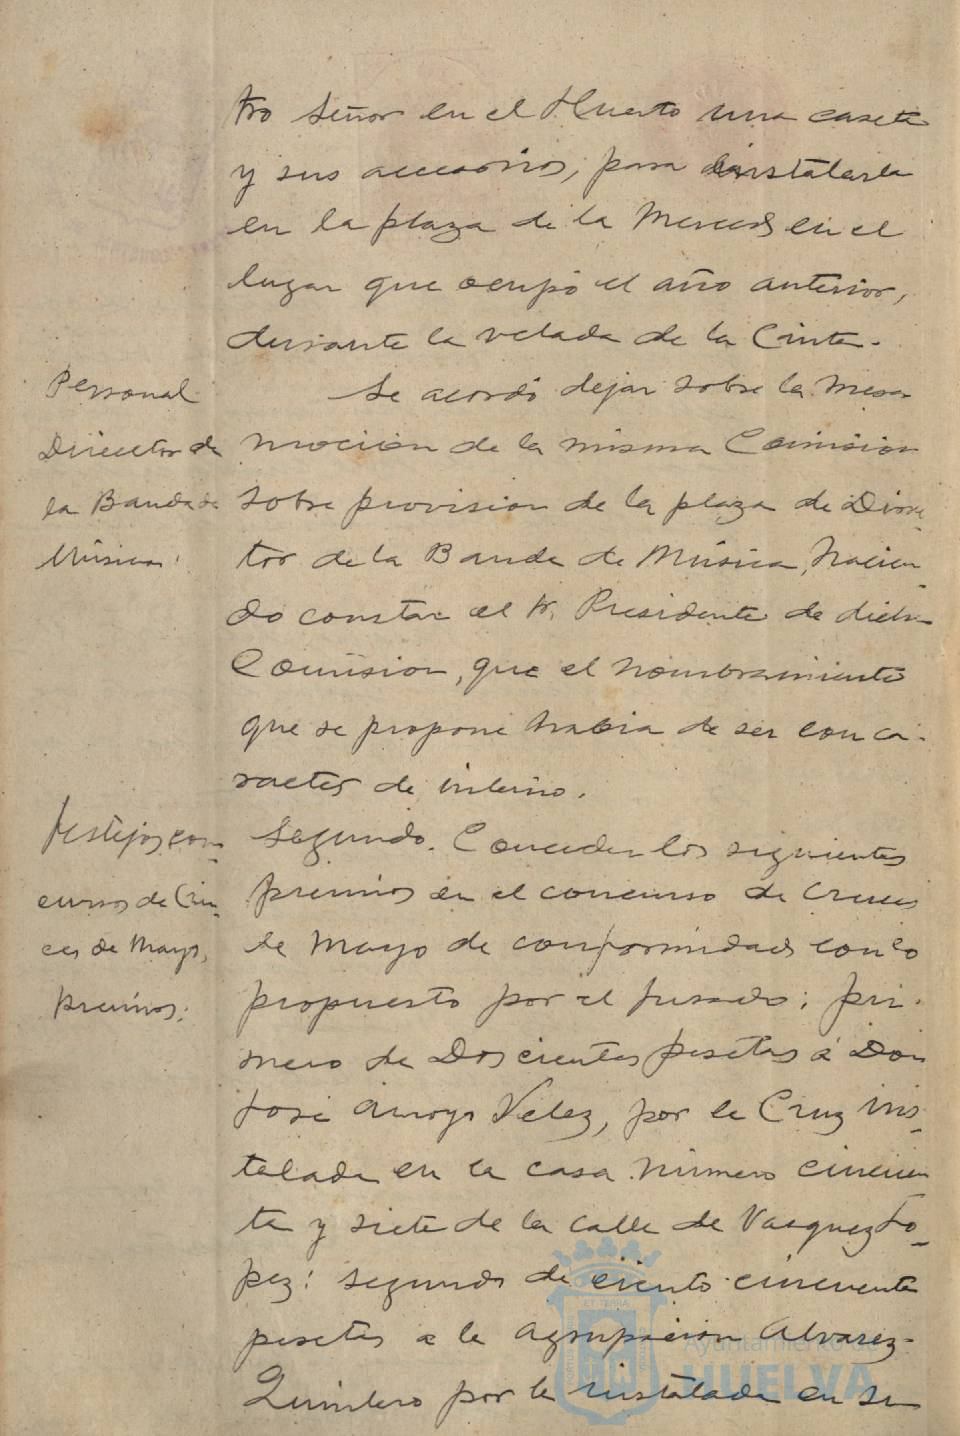 tro Señor en el Huerto una caseta
y sus accesorios, para instalarla
en la plaza de la Merced en el
lugar que ocupó el año anterior,
durante la velada de la Cinta.
Personal
Director de
la Banda de
Música:
Se acordó dejar sobre la mesa
moción de la misma Comision
sobre provision de la plaza de Direc-
tor de la Banda de Música, hacien-
do constar el Sr. Presidente de dicha
Comision, que el nombramiento
que se propone habia de ser con ca-
racter de interino.
Festejos, con-
cursos de Cru-
ces de Mayo,
premios:
Segundo. Conceder los siguientes
premios en el concurso de Cruces
de Mayo de conformidad con lo
propuesto por el Jurado; pri-
mero de Doscientas pesetas á Don
José Arroyo Velez, por la Cruz ins-
talada en la casa número cincuen
ta y siete de la calle de Vazquez Lo-
pez: segundo de ciento cincuenta
pesetas a la Agrupacion Alvarez-
Quintero por la instalada en su
Ayuntamiento de
HUELVA